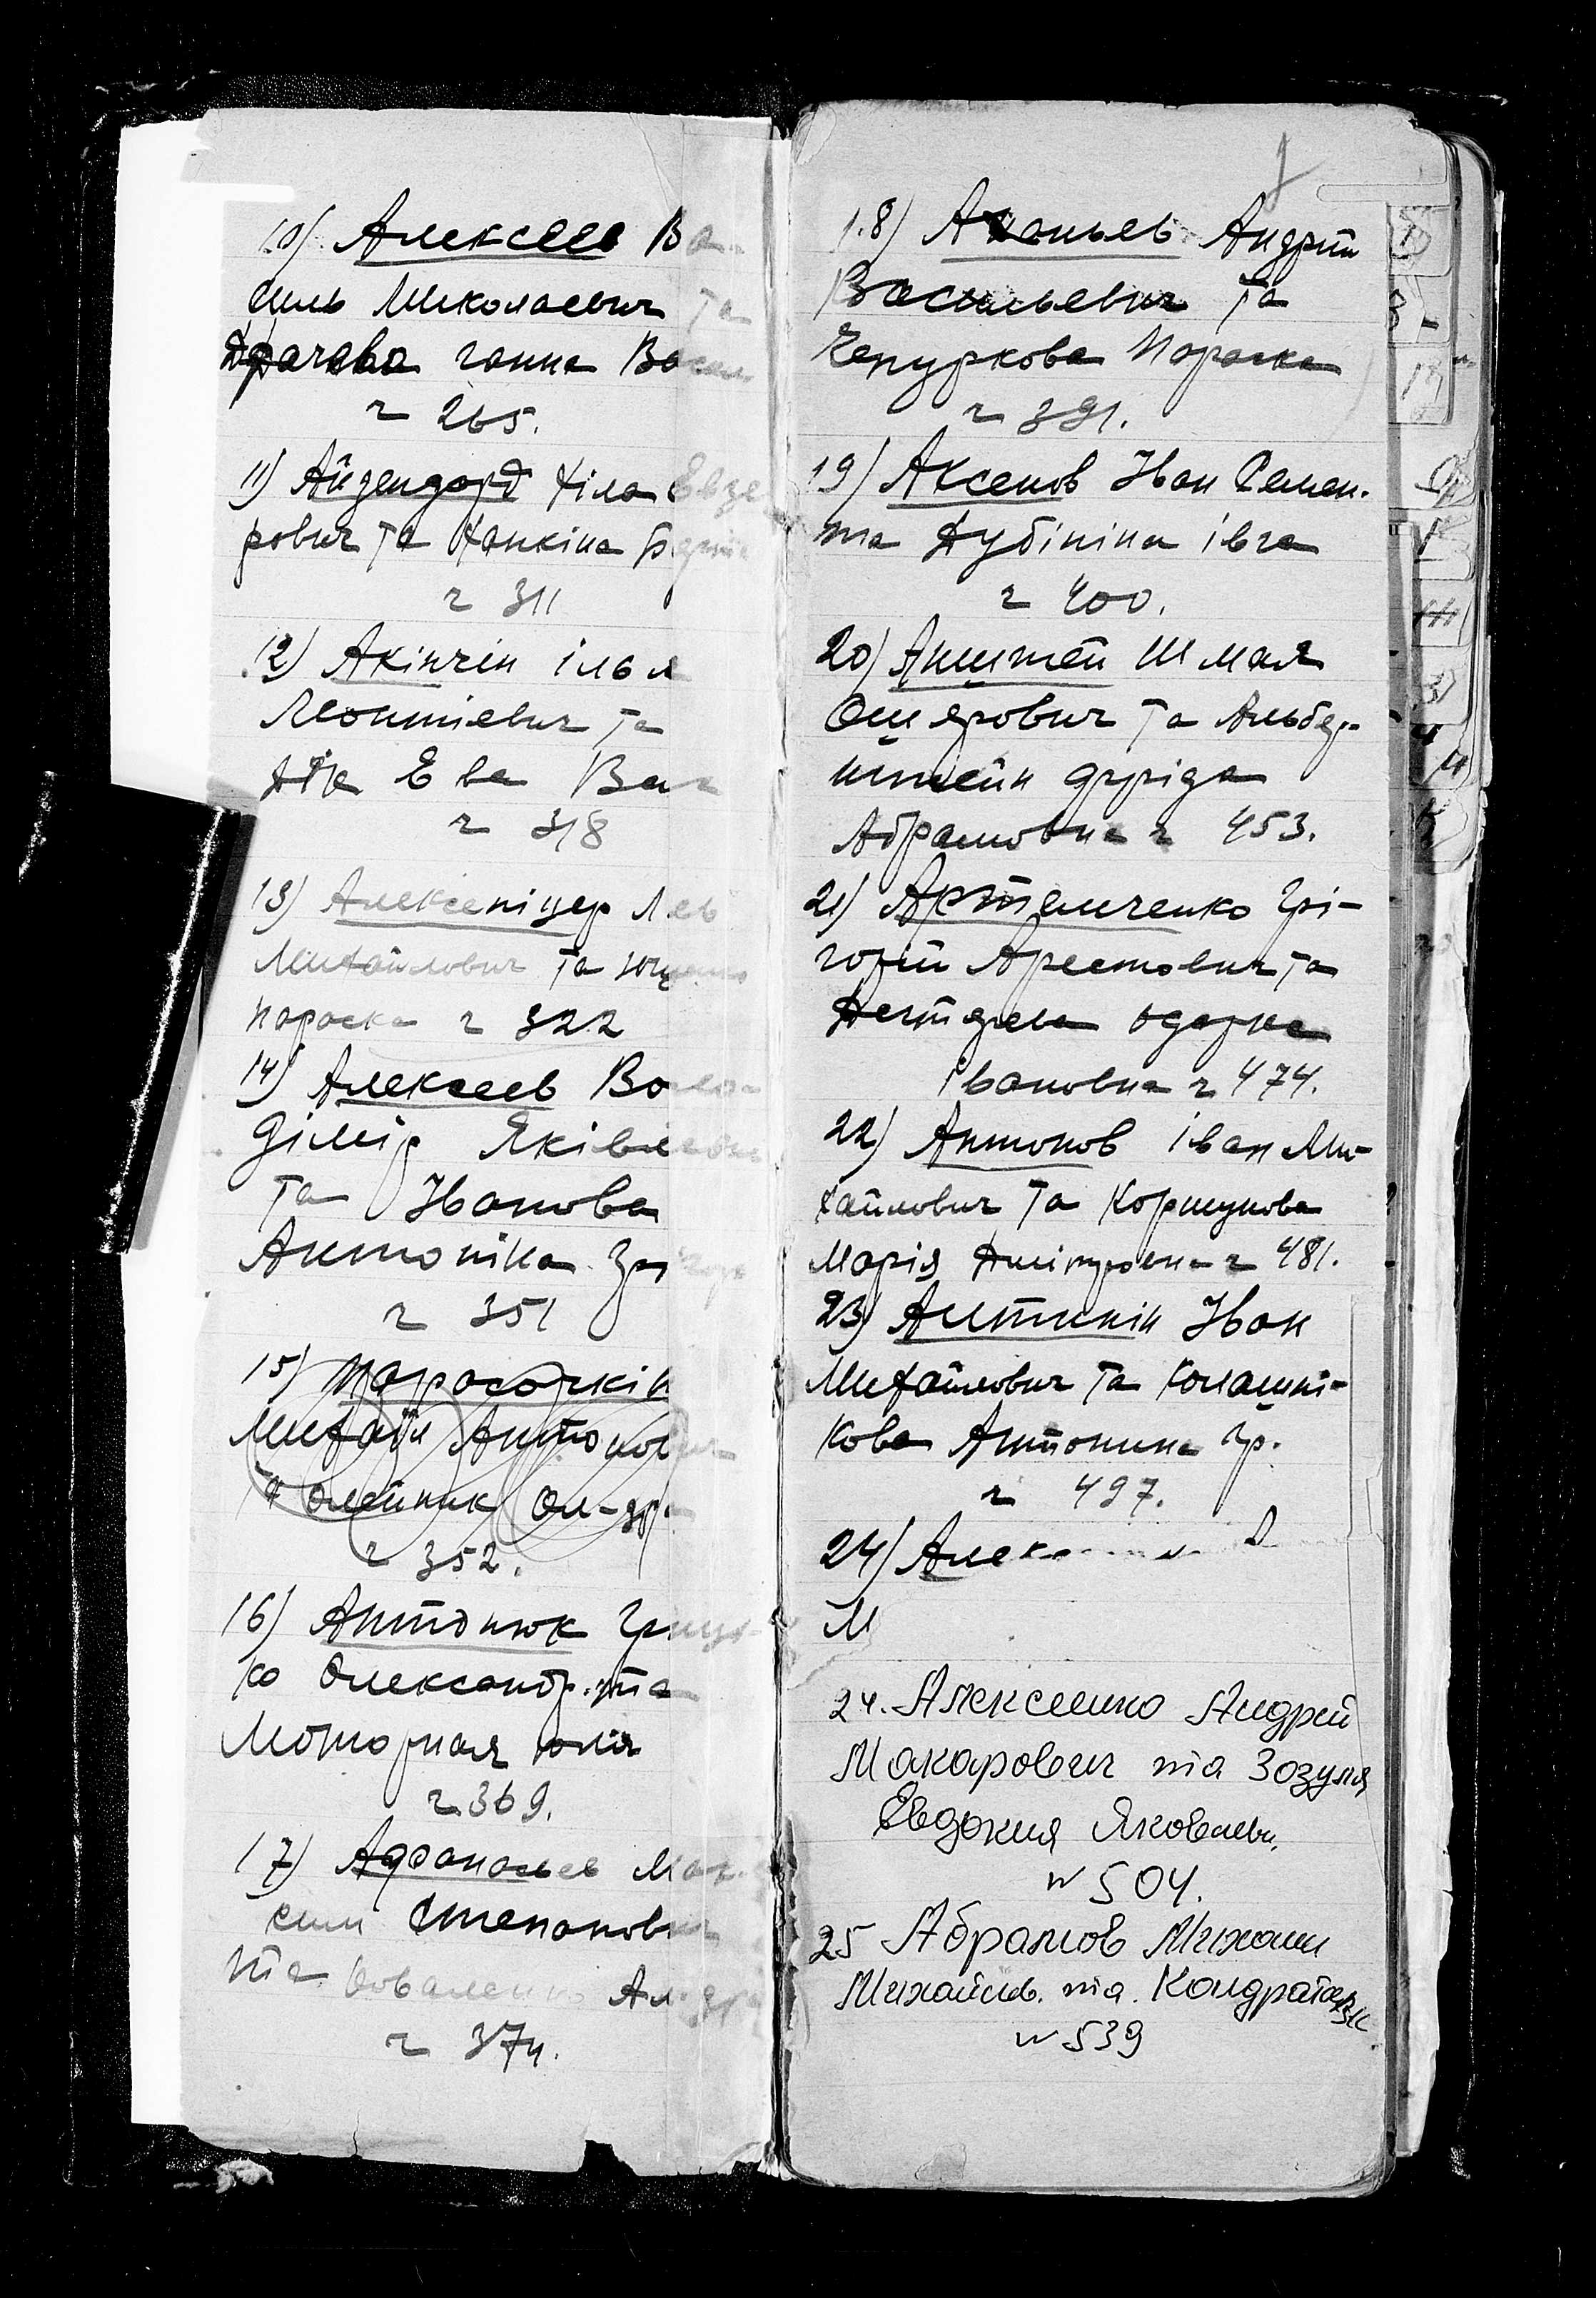 10) Алексеев Ва-
силь Миколаевич та
Драчева ганна Васил
ч 265.
11) Айзендорф Хіла Евзе
рович та Ханкіна
ч 311
12) Акінчін ілья
Леонтіевич та
Ева Вас
ч 318
13) Лев
Михайлович та
параска ч 322
14) Алексеев Воло-
дімір Яківлевич
та Іванова
Антоніна Григор
ч 351
15) Тарасочкін
Михайл Антонович
та Олейник Ол-др
ч 352.
16) Антонюк Гриць-
ко Олександр. та
Моторная юлія
ч 369.
17) Афанасьев Мак-
сим Степанович
та Коваленко Ал-дра
ч 374.
18) Ананьев Андрій
Васильевич та
Чепуркова Параска
ч 391.
19) Аксенов Іван Семен.
та Дубініна івга
ч 400.
20) Анштей Шмая
Ошерович та Альбер-
штейн фріда
Абрамовна ч 453.
21) Артемченко Грі-
горій Арестович та
одарка
івановна ч 474.
22) Антонов іван Ми-
хайлович та Коршунова
Марія Дмітровна ч 481.
23) Антипін Іван
Михайлович та Колашні-
кова Антонина Гр.
ч 497.
24) Алек
М
24. Алексеенко Андрей
Макарович та Зозуля
Евдокия Яковлевн.
№ 504.
25 Абрамов Михаил
Михайлов. та Кондрата
№ 539